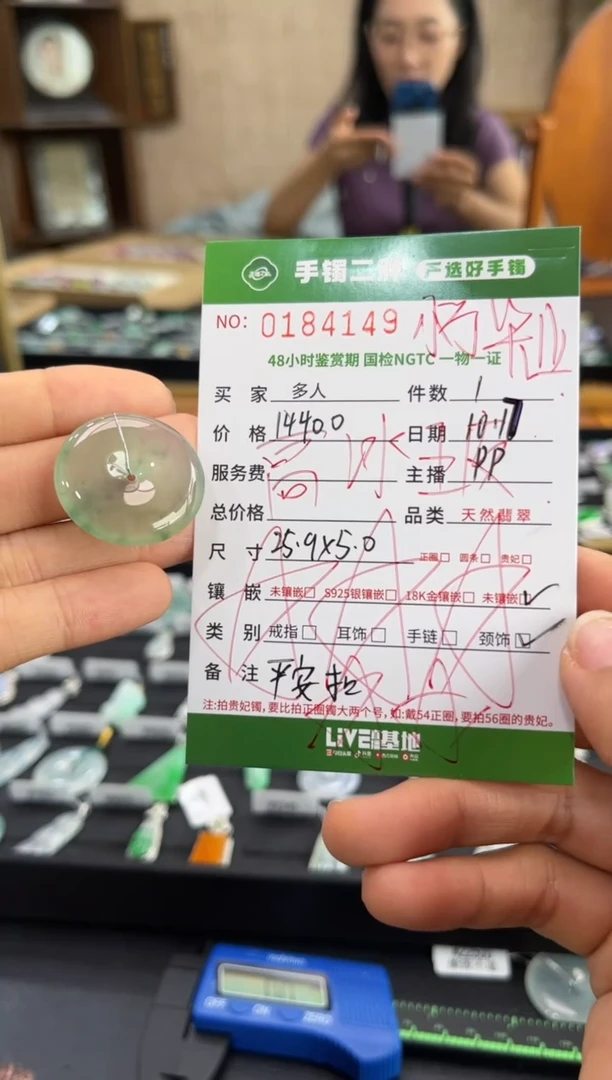 严选好手镯
NO: 0184149
48小时鉴赏期 国检NGTC 一物一证
买 家 多人 件数 1
价 格 14400 日期 10.17
服务费 主播 PP
总价格 品类 天然翡翠
尺 寸 25.9x5.0 正圈 圆条 贵妃
镶 嵌 未镶嵌 S925银镶嵌 18K金镶嵌 未镶嵌
类 别 戒指 耳饰 手链 颈饰
备 注 平安扣
注:拍贵妃镯,要比拍正圈镯大两个号,如:戴54正圈,要拍56圈的贵妃。
LIVE 基地